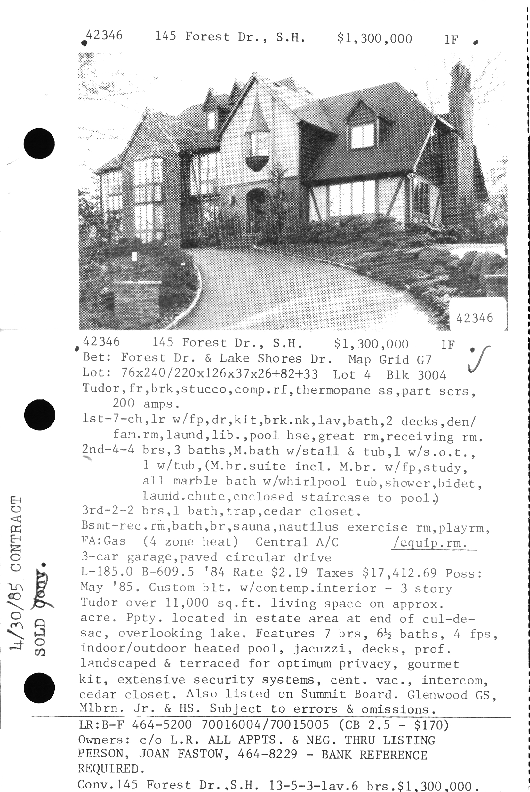 42346 145 Forest Dr., S.H. $1,300,000 1F
42346
42346 145 Forest Dr., S.H. $1,300,000 1F
Bet: Forest Dr. & Lake Shores Dr. Map Grid G7
Lot: 76x240/220x126x37x26+82+33 Lot 4 Blk 3004
Tudor,fr,brk,stucco,comp.rf,thermopane ss,part scrs,
200 amps.
1st-7-ch,lr w/fp,dr,kit,brk.nk,lav,bath,2 decks,den/
fam.rm,laund,lib.,pool hse,great rm,receiving rm.
2nd-4-4 brs,3 baths,M.bath w/stall & tub,1 w/s.o.t.,
1 w/tub,(M.br.suite incl. M.br. w/fp,study,
all marble bath w/whirlpool tub,shower,bidet,
laund.chute,enclosed staircase to pool)
3rd-2-2 brs,1 bath,trap,cedar closet.
Bsmt-rec.rm,bath,br,sauna,nautilus exercise rm,playrm,
FA:Gas (4 zone heat) Central A/C /equip.rm.
3-car garage,paved circular drive
L-185.0 B-609.5 '84 Rate $2.19 Taxes $17,412.69 Poss:
May '85. Custom blt. w/contemp.interior - 3 story
Tudor over 11,000 sq.ft. living space on approx.
acre. Ppty. located in estate area at end of cul-de-
sac, overlooking lake. Features 7 brs, 6½ baths, 4 fps,
indoor/outdoor heated pool, jacuzzi, decks, prof.
landscaped & terraced for optimum privacy, gourmet
kit, extensive security systems, cent. vac., intercom,
cedar closet. Also listed on Summit Board. Glenwood GS,
Mlbrn. Jr. & HS. Subject to errors & omissions.
LR:B-F 464-5200 70016004/70015005 (CB 2.5 - $170)
Owners: c/o L.R. ALL APPTS. & NEG. THRU LISTING
PERSON, JOAN FASTOW, 464-8229 - BANK REFERENCE
REQUIRED.
Conv.145 Forest Dr.,S.H. 13-5-3-lav.6 brs.$1,300,000.
4/30/85 CONTRACT
SOLD